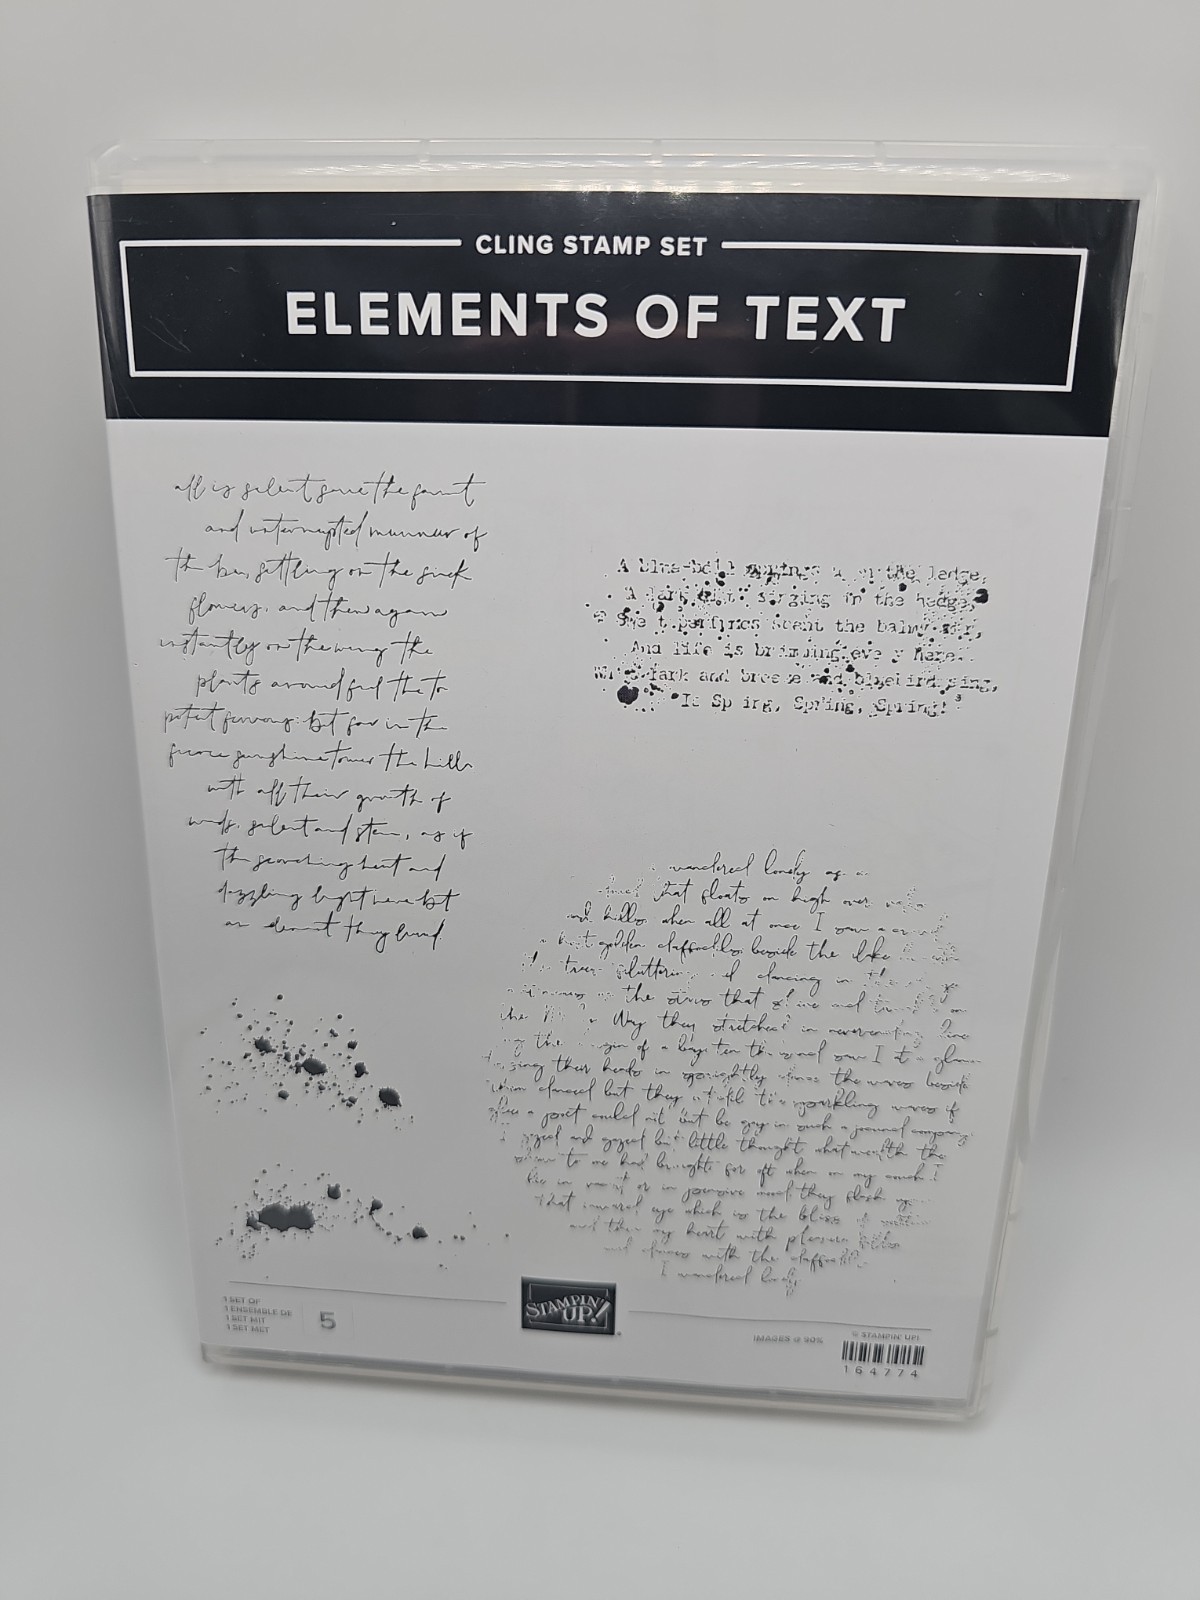 CLING STAMP SET
ELEMENTS OF TEXT
all is silent save the faint
and interrupted murmur of
the bee, settling on the sick
flowers, and then again
instantly on the wing the
plants around feel the to
potent fervour: but far in the
fierce sunshine tower the hills
with all their growth of
woods, silent and stern, as if
the scorching heat and
dazzling light were but
an element they loved.
A blue-bell springs upon the ledge,
A lark sits singing in the hedge;
Sweet perfumes scent the balmy air,
And life is brimming every where.
What lark and breeze and bluebird sing,
Is Spring, Spring, Spring!
I wandered lonely as a
cloud that floats on high over vales
and hills when all at once I saw a crowd
a host golden daffodils beside the lake
the trees fluttering and dancing in the
as the stars that shine and twinkle on
the Milky Way they stretched in never ending line
the margin of a bay ten thousand saw I at a glance
tossing their heads in sprightly dance the waves beside
them danced but they out did the sparkling waves if
a poet could not but be gay in such a jocund company
I gazed and gazed but little thought what wealth the
show to me had brought for oft when on my couch I
lie in vacant or in pensive mood they flash
that inward eye which is the bliss of
and then my heart with pleasure fills
and dances with the daffodils
I wandered lonely
1 SET OF
1 ENSEMBLE DE
1 SET MIT
1 SET MET
5
STAMPIN' UP!
IMAGES @ 90%
© STAMPIN' UP!
164774